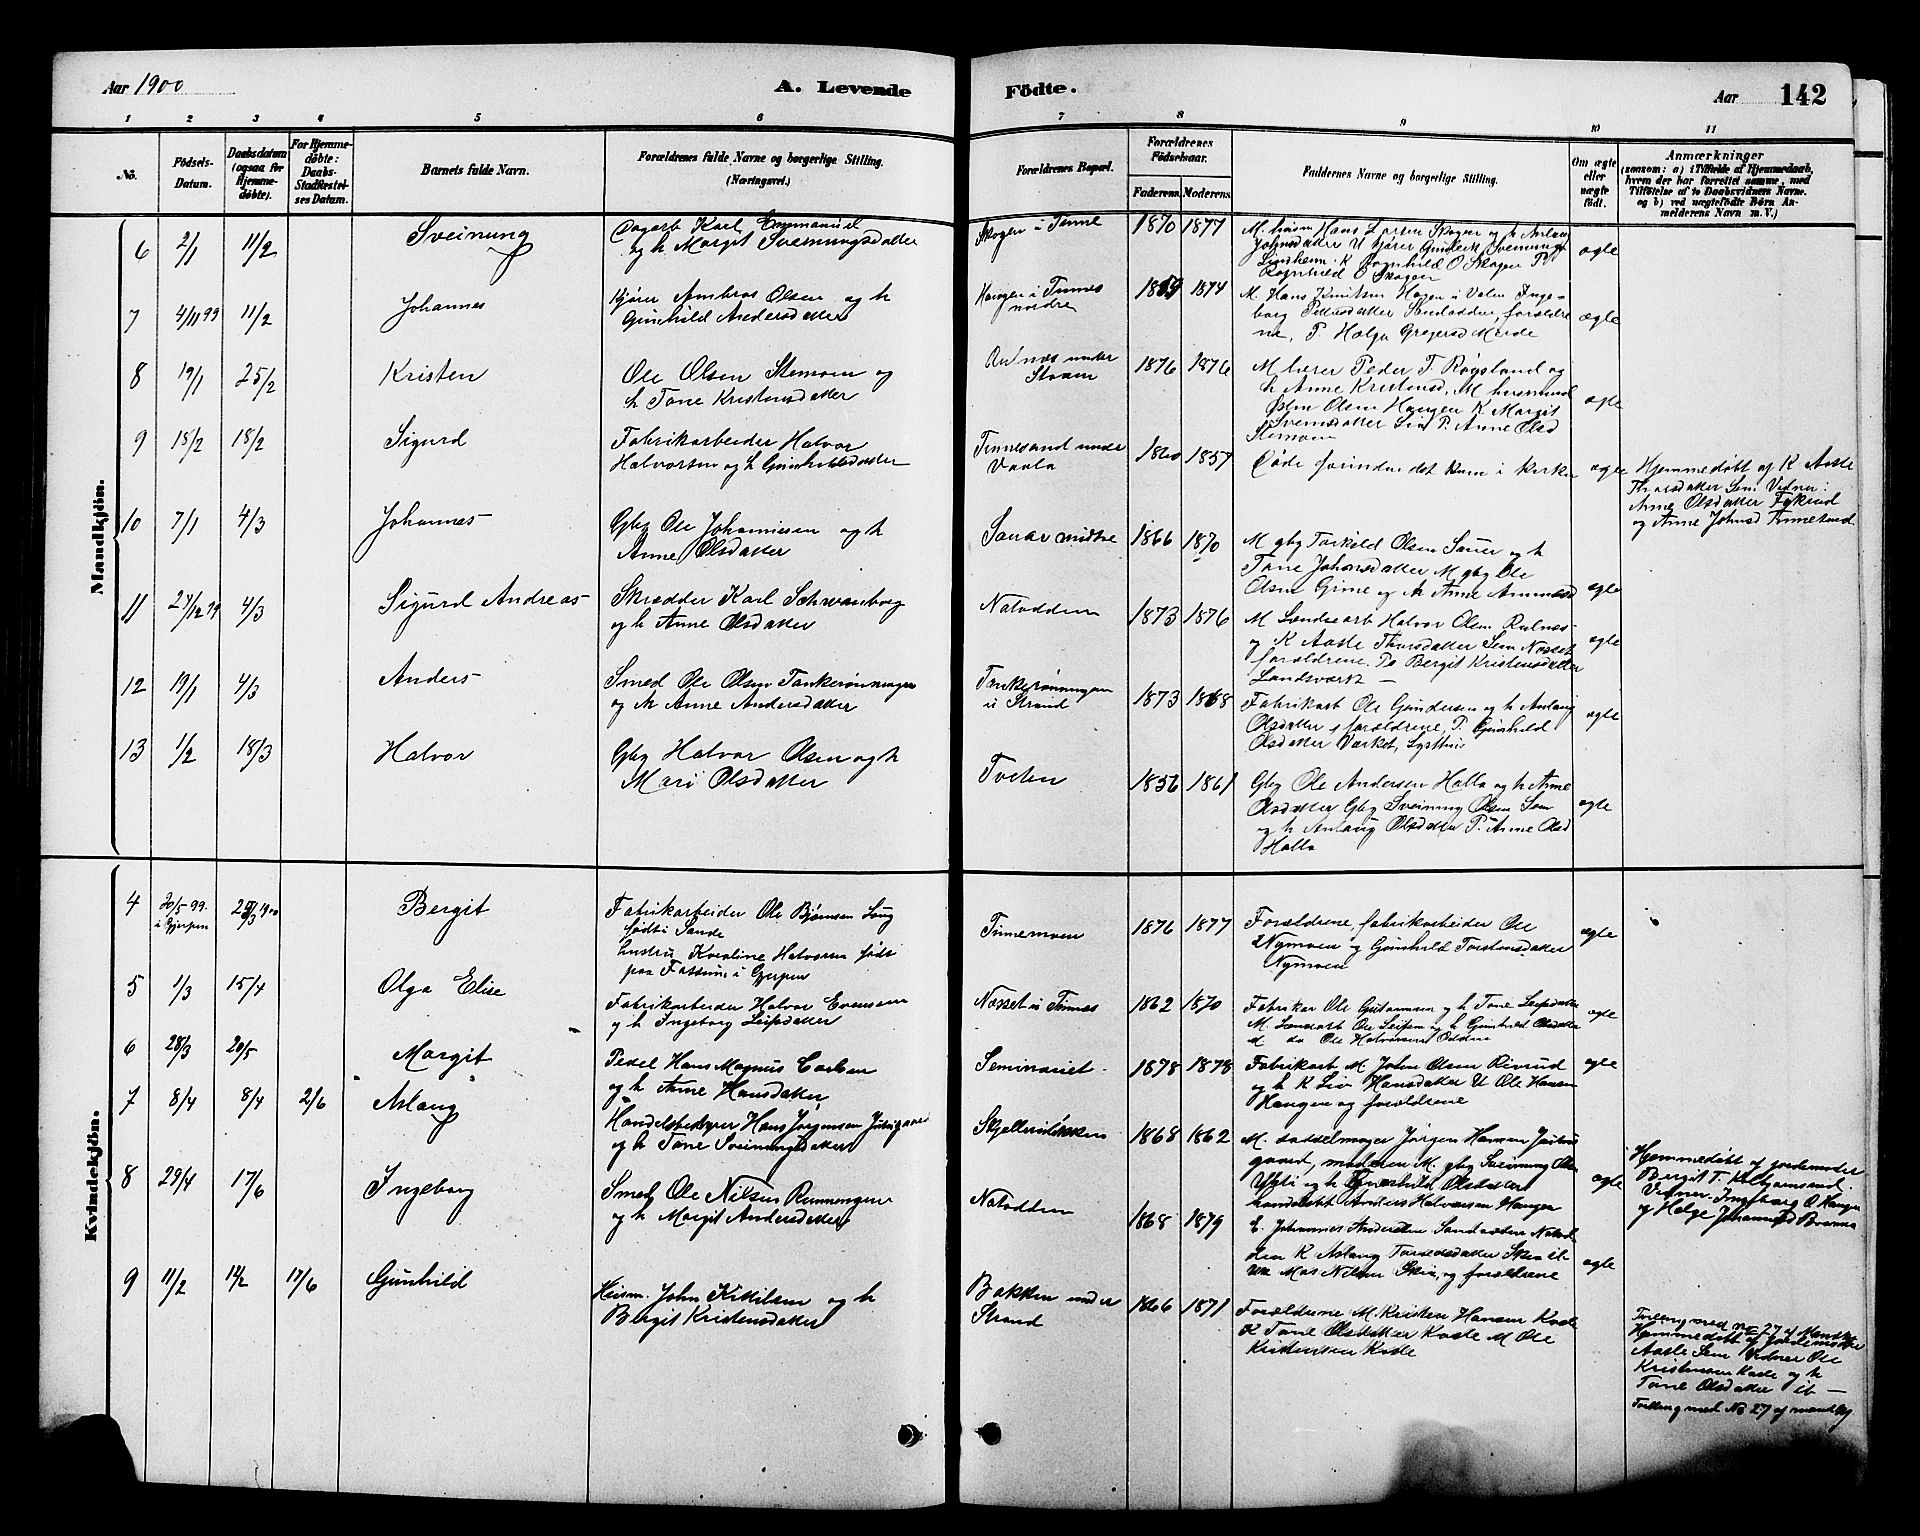 Aar 1900
A. Levende
Födte.
Aar
142
1 2 3 4 5 6 7 8 9 10 11
No.
Födsels-
Datum.
Daabsdatum
(ogsaa for
Hjemme-
döbte).
For Hjemme-
döbte:
Daabs-
Stadfæstel-
ses Datum.
Barnets fulde Navn.
Forældrenes fulde Navne og borgerlige Stilling.
(Næringsvei.)
Forældrenes Bopæl.
Forældrenes
Födselsaar.
Faderens. Moderens.
Faddernes Navne og borgerlige Stilling.
Om ægte
eller
uægte
födt.
Anmærkninger
(saasom: a) i Tilfælde af Hjemmedaab,
hvem der har forrettet samme, med
Tilföielse af to Daabsvidners Navne.
og b) ved uægtefödte Börn An-
melderens Navn m.V.)
Mandkjön.
6 2/1 11/2 Sveinung
Dagarb Karl Emmanuel
og h Margit Sveinungsdatter
Skogen i Tinne
1870 1877
M. husm Hans Larsen Skogen og h Aslaug
ægte
7 4/11 99 11/2 Johannes
Kjører Ambros Olsen og h
Gunhild Andersdatter
Haugen i Tinnes
nordre
1869 1874
M. Hans Knutsen Hagen i Valen Inge-
borg Pettersdatter Sandodden, forældre
ne, P. Helga Gregersd Meide
ægte
8 19/1 25/2 Kristen
Ole Olsen Stemoen og
h Tone Kristensdatter
under
1876 1876
M lærer Peder T. Røysland og
h Anne Kristensd, M husmand
Østen Olsen Haugen K Margit
Svensdatter Lia P. Anne Olsd
Stemoen
ægte
9 15/2 18/2 Sigurd
Fabrikarbeider Halvor
Halvorsen og h Gunhild
Tinnesand under
1860 1857
Døde forinden det kom i kirken
ægte
Hjemmedøbt af K Aaste
Thorsdatter Sem Vidner:
Anne Olsdatter
og Anne Johnsd Tinnesand
10 7/1 4/3 Johannes
Gbg Ole Johannesen og h
Anne Olsdatter
Sauar midtre
1866 1870
M gbg Torkild Olsen Sauer og h
Tone Johansdatter M gbg Ole
Olsen Grime og h Anne
ægte
11 27/12 99 4/3 Sigurd Andreas
Skrædder Karl Schwanborg
og h Anne Olsdatter
Notodden
1873 1876
M Landsearb Halvor Olsen
og K Aaste Thorsdatter Sem Næsset
forældrene. P. Bergit Kristensdatter
Landsværk
ægte
12 19/1 4/3 Anders
Smed Ole Olsen Tankerønningen
og h Anne Andersdatter
Tankerønningen
u Strand
1873 1868
Fabrikarb Ole Gundersen og h Aslaug
Olsdatter, forældrene, P. Gunhild
Olsdatter Værket,
ægte
13 1/2 18/3 Halvor
Gbg Halvor Olsen og h
Mari Olsdatter
Tveten
1856 1861
Gbg Ole Andersen Halla og h Anne
Olsdatter Gbg Sveinung Olsen Sem
og h Aslaug Olsdatter P. Anne Olsd
Halla
ægte
Kvindekjön.
4 20/5 99. i Gjerpen 25/3 1900 Bergit
Fabrikarbeider Ole Bjørnsen Loug
født i Sande
hustru Karoline Halvorsen født
paa Fossum i Gjerpen
Tinnemoen
1876 1877
Forældrene, fabrikarbeider Ole
Nymoen og Gunhild Torstensdatter
Nymoen
ægte
5 1/3 15/4 Olga Elise
Fabrikarbeider Halvor Evensen
og h Ingeborg Leifsdatter
Næsset u Tinnes
1862 1870
Fabrikar Ole og h Tone Leifsdatter
M. Landarb Ole Leifsen og h Gunhild Olsdatter
do Ole Halvorsen Odden
ægte
6 28/3 20/5 Margit
Pedel Hans Magnus Carlsen
og h Anne Hansdatter
Seminariet
1878 1878
Fabrikarb M John Olsen Rivrud
og h K Liv Hansdatter U Ole Hansen
Haugen og forældrene
ægte
7 8/4 8/4 2/6 Aslaug
Handelsbestyrer Hans Jørgensen
og h Tone Sveinungsdatter
1868 1862
M. sadelmager Jørgen Hansen
gaard, moderen M. gbg Sveinung Olsen
og h Gunhild Olsdatter
handelsbt Anders Halvorsen Haugen
ægte
Hjemmedøbt af jordemoder
Bergit T.
Vidner. Ingeborg O Haugen
og Helge
8 29/4 17/6 Ingeborg
Smed Ole Nilsen Rønningen
og h Margit Andersdatter
Notodden
1868 1879
E. Johannes Andersen Sandodden Notod
den K Aslaug
Mas Nilsen Skien, og forældrene
ægte
9 11/2 14/2 17/6 Gunhild
Husm. John Kittilsen og h
Bergit Kristensdatter
Bakken under
Strand
1866 1871
Forældrene M. Kristen Hansen Kaste
K Tone Olsdatter Kaste M Ole
Kristensen Kaste
Tvilling med no 27 af Mandkj
Hjemmedøbt af jordemoder
Aaste Sem Vidner Ole
Kristensen Kaste og h
Tone Olsdatter ib —
Tvilling med No 27 af mandkj